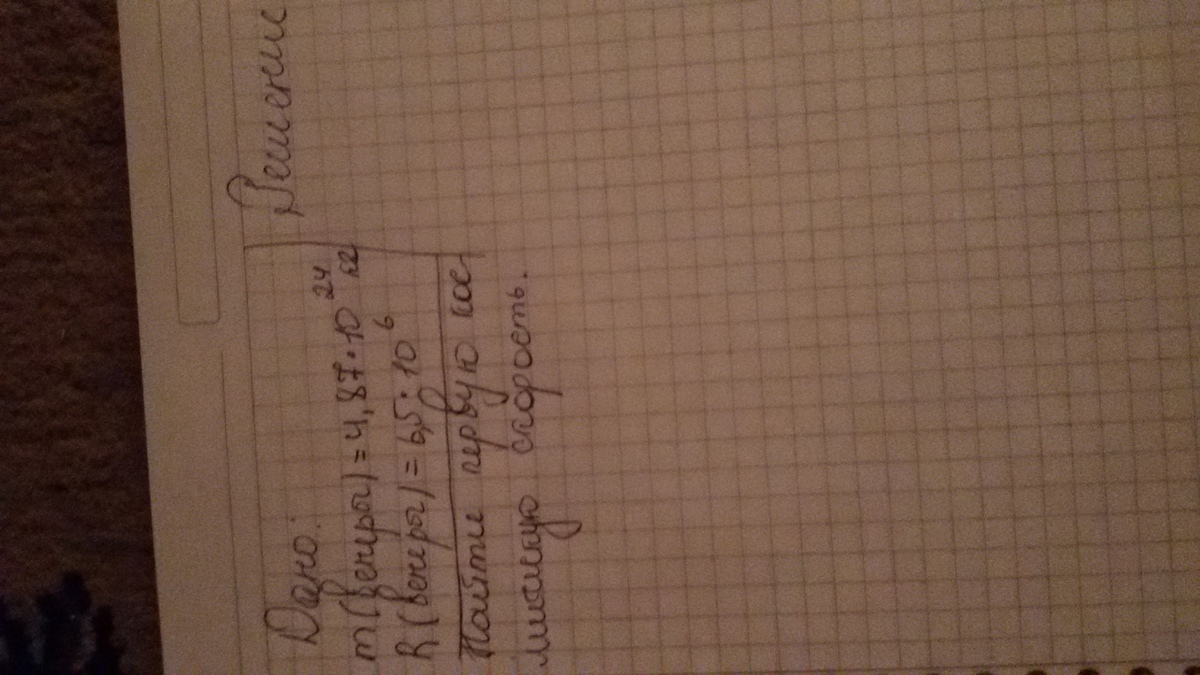 Дано:
m (венеры) = 4,87 · 10²⁴ кг
R (венеры) = 6,5 · 10⁶
Найти первую кос-
мическую скорость.
Решение